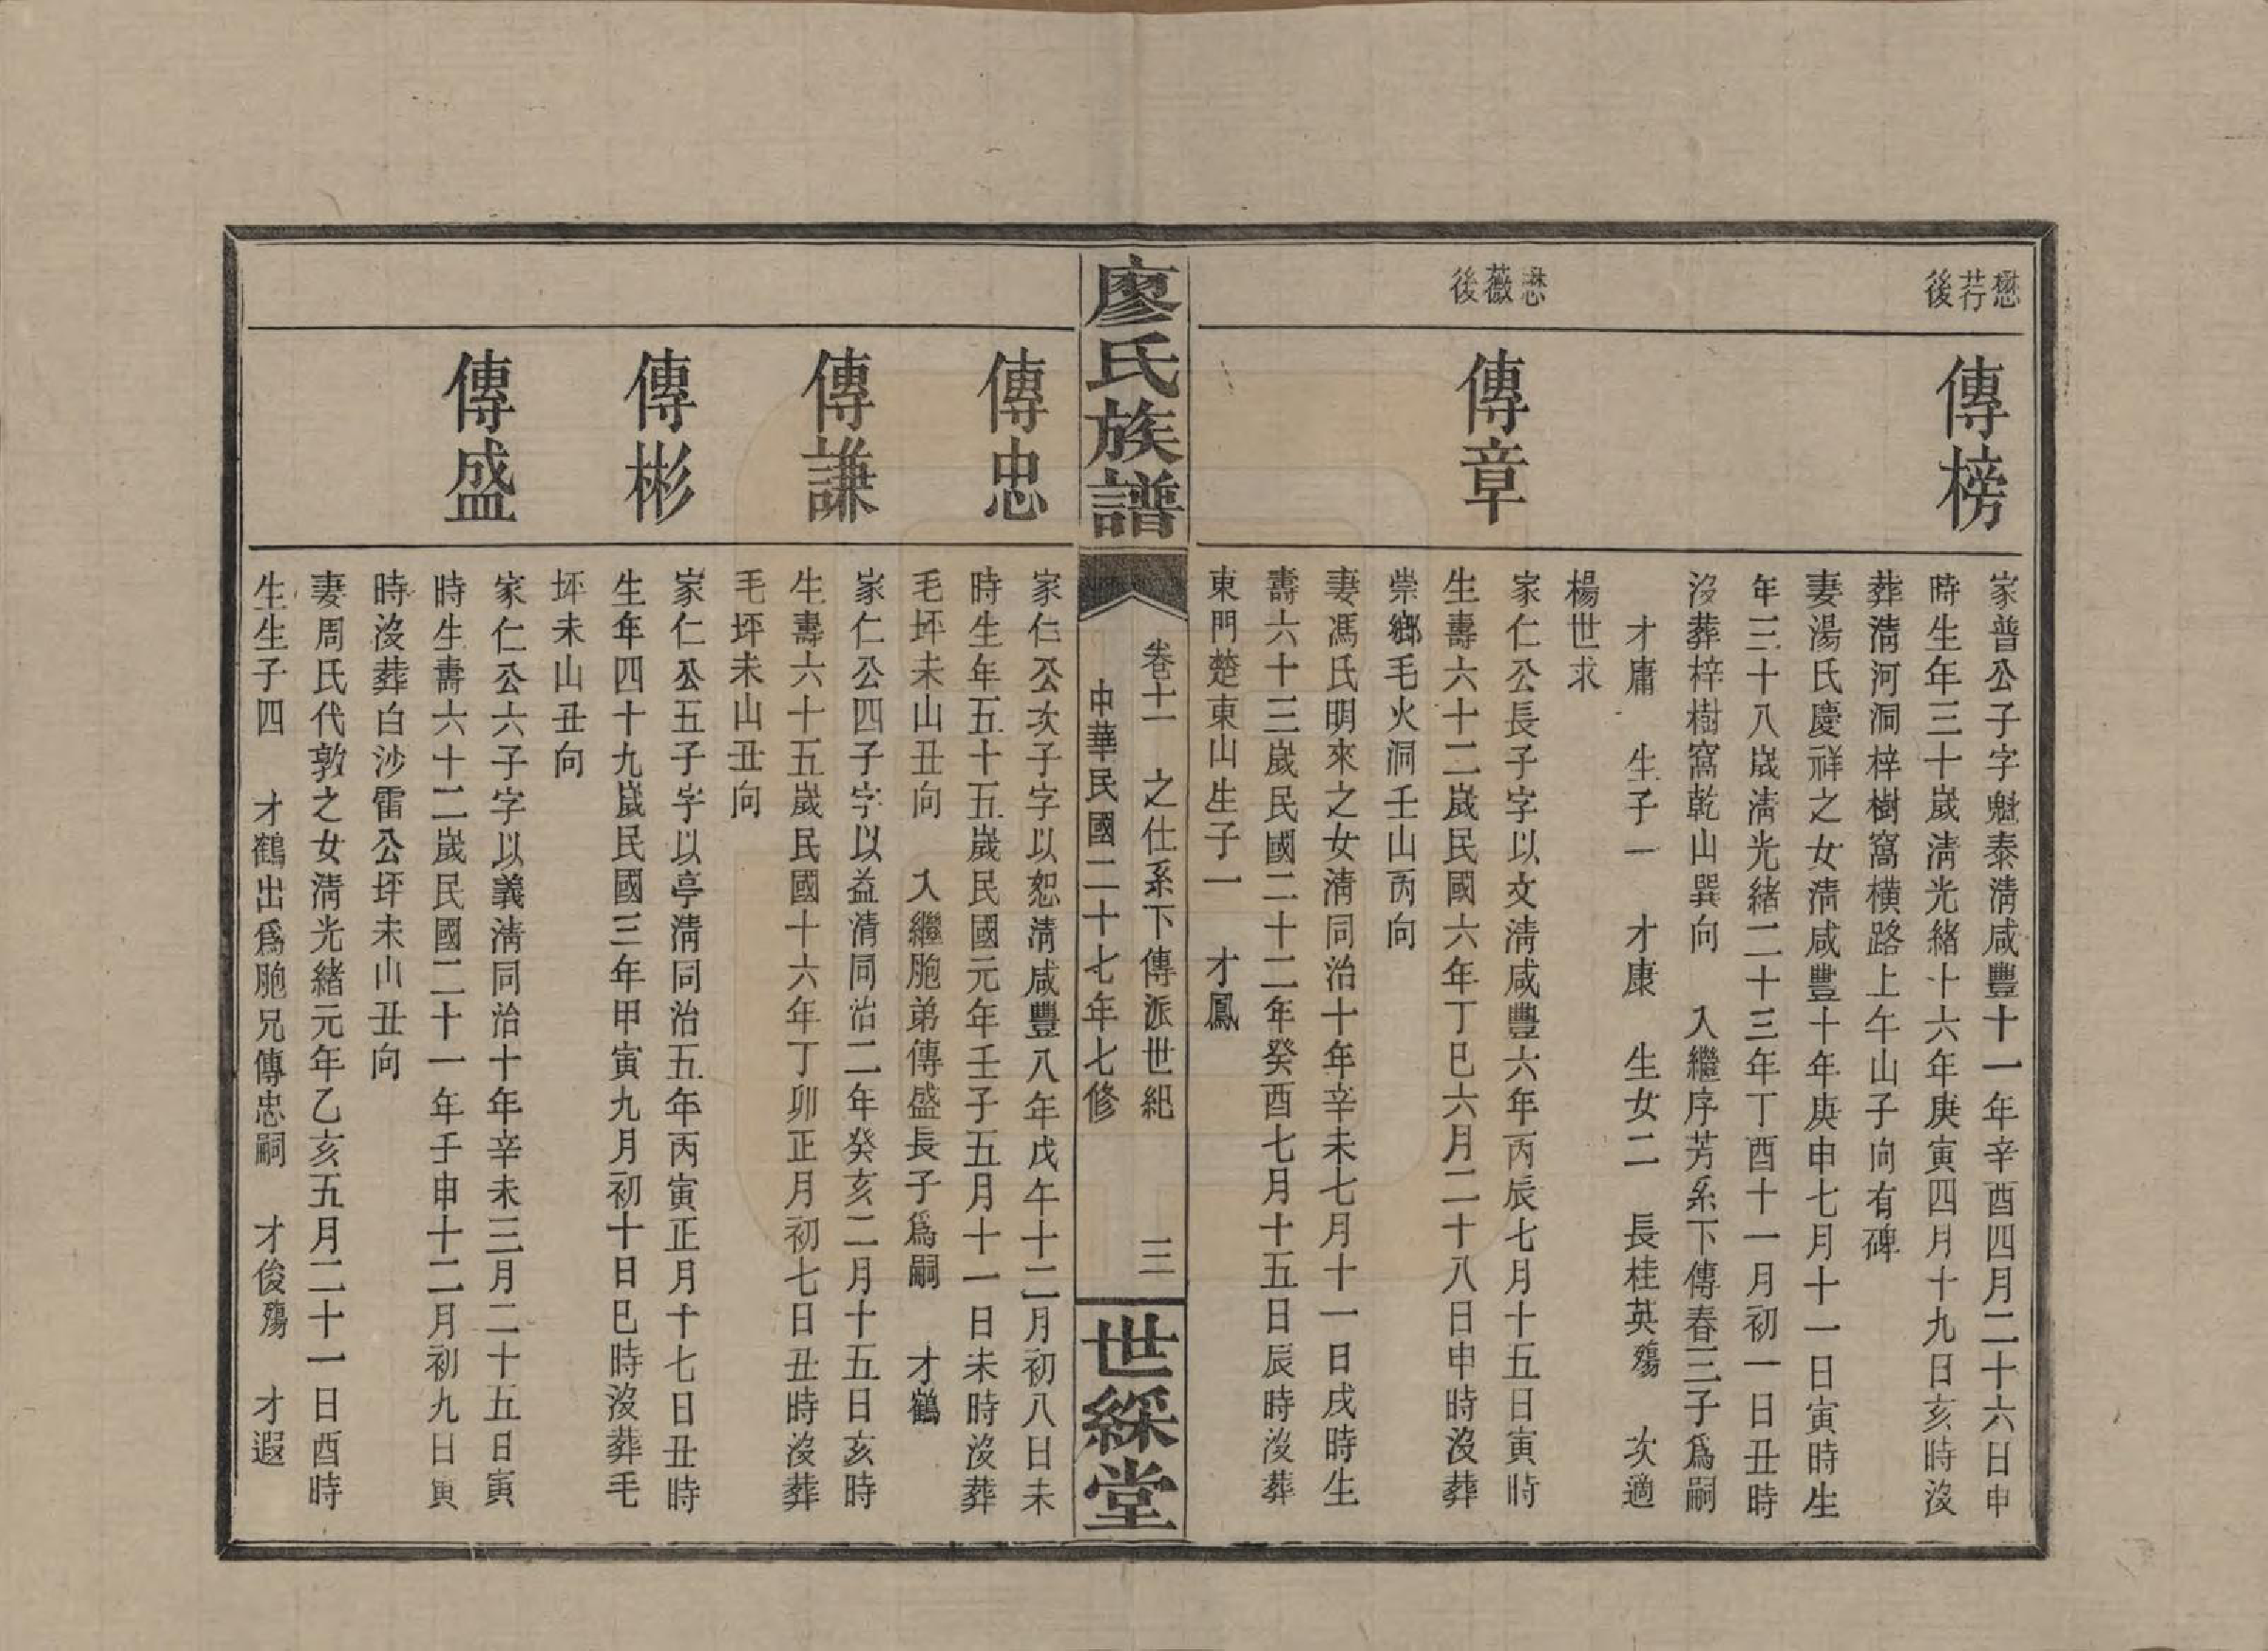 懋荇後
傳榜
家普公子字魁泰淸咸豐十一年辛酉四月二十六日申
時生年三十歲淸光緒十六年庚寅四月十九日亥時沒
葬淸河洞梓樹窩橫路上午山子向有碑
妻湯氏慶祥之女淸咸豐十年庚申七月十一日寅時生
年三十八歲淸光緒二十三年丁酉十一月初一日丑時
沒葬梓樹窩乾山巽向　入繼序芳系下傳春三子爲嗣
才庸　生子一　才康　生女二　長桂英殤　次適
楊世求
懋薇後
傳章
家仁公長子字以文淸咸豐六年丙辰七月十五日寅時
生壽六十二歲民國六年丁巳六月二十八日申時沒葬
崇鄉毛火洞壬山丙向
妻馮氏明來之女淸同治十年辛未七月十一日戌時生
壽六十三歲民國二十二年癸酉七月十五日辰時沒葬
東門楚東山生子一　才鳳
廖氏族譜
卷十一　之仕系下傳派世紀　三
中華民國二十七年七修
世綵堂
傳忠
家仁公次子字以恕淸咸豐八年戊午十二月初八日未
時生年五十五歲民國元年壬子五月十一日未時沒葬
毛坪未山丑向　入繼胞弟傳盛長子爲嗣　才鶴
傳謙
家仁公四子字以益淸同治二年癸亥二月十五日亥時
生壽六十五歲民國十六年丁卯正月初七日丑時沒葬
毛坪未山丑向
傳彬
家仁公五子字以亭淸同治五年丙寅正月十七日丑時
生年四十九歲民國三年甲寅九月初十日巳時沒葬毛
坪未山丑向
傳盛
家仁公六子字以義淸同治十年辛未三月二十五日寅
時生壽六十二歲民國二十一年壬申十二月初九日寅
時沒葬白沙雷公坪未山丑向
妻周氏代敦之女淸光緒元年乙亥五月二十一日酉時
生生子四　才鶴出爲胞兄傳忠嗣　才俊殤　才遐